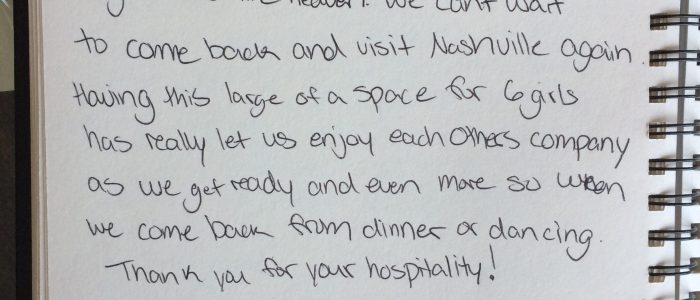 heaven! We can't wait
to come back and visit Nashville again.
Having this large of a space for 6 girls
has really let us enjoy each others company
as we get ready and even more so when
we come back from dinner or dancing.
Thank you for your hospitality!